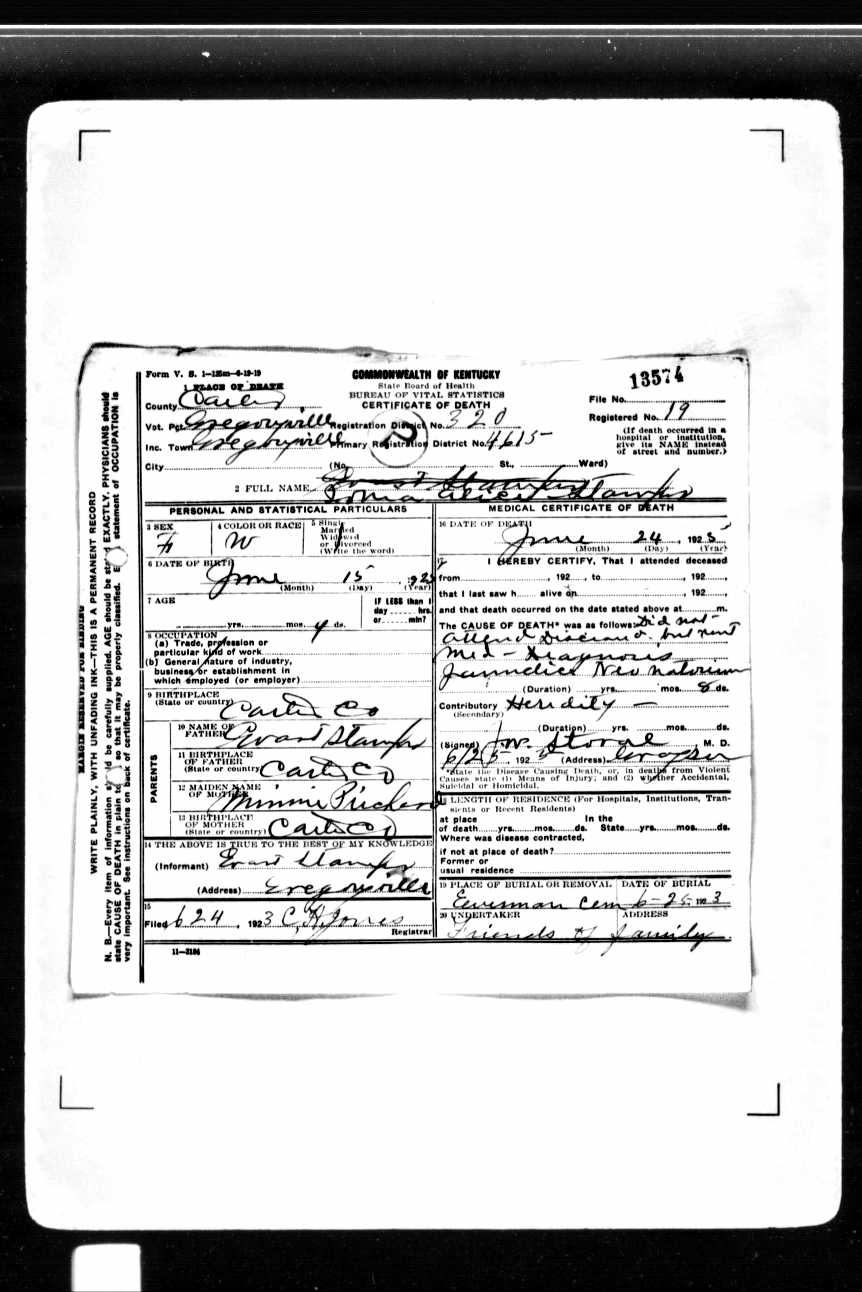 Form V. S. 1—125m—6-19-19
COMMONWEALTH OF KENTUCKY
13574
1 PLACE OF DEATH
State Board of Health
BUREAU OF VITAL STATISTICS
CERTIFICATE OF DEATH
County Carter
File No.
Vot. Pct. Gregoryville Registration District No. 320
Registered No. 19
Inc. Town Gregoryville Primary Registration District No. 4615
(If death occurred in a hospital or institution, give its NAME instead of street and number.)
City (No. St., Ward)
2 FULL NAME Alice Stamper
PERSONAL AND STATISTICAL PARTICULARS
3 SEX F
4 COLOR OR RACE W
5 Single Married Widowed or Divorced (Write the word)
6 DATE OF BIRTH June 15, 1923
(Month) (Day) (Year)
7 AGE
yrs. mos. 9 ds.
IF LESS than 1 day hrs. or min?
8 OCCUPATION
(a) Trade, profession or particular kind of work
(b) General nature of industry, business or establishment in which employed (or employer)
9 BIRTHPLACE
(State or country) Carter Co
PARENTS
10 NAME OF FATHER Evart Stamper
11 BIRTHPLACE OF FATHER
(State or country) Carter Co
12 MAIDEN NAME OF MOTHER Minnie
13 BIRTHPLACE OF MOTHER
(State or country) Carter Co
14 THE ABOVE IS TRUE TO THE BEST OF MY KNOWLEDGE
(Informant) Evart Stamper
(Address) Gregoryville
15
Filed 6 24, 1923 C. H. Jones
Registrar
11—2184
MEDICAL CERTIFICATE OF DEATH
16 DATE OF DEATH
June 24, 192
(Month) (Day) (Year)
17 I HEREBY CERTIFY, That I attended deceased
from , 192 , to , 192 ,
that I last saw h alive on , 192 ,
and that death occurred on the date stated above at m.
The CAUSE OF DEATH* was as follows: Did not
attend but sent
Med — Diagnosis
Jaundice Neo natorium
(Duration) yrs. mos. 8 ds.
Contributory Heredity —
(Secondary)
(Duration) yrs. mos. ds.
(Signed) J.W. Stovall M. D.
6/25 192 (Address) Grayson
*State the Disease Causing Death, or, in deaths from Violent
Causes state (1) Means of Injury; and (2) whether Accidental,
Suicidal or Homicidal.
18 LENGTH OF RESIDENCE (For Hospitals, Institutions, Transients or Recent Residents)
at place of death yrs. mos. ds. In the State yrs. mos. ds.
Where was disease contracted,
if not at place of death?
Former or
usual residence
19 PLACE OF BURIAL OR REMOVAL DATE OF BURIAL
Cem 6-25- 1923
20 UNDERTAKER ADDRESS
Friends of family
MARGIN RESERVED FOR BINDING
WRITE PLAINLY, WITH UNFADING INK—THIS IS A PERMANENT RECORD
N. B.—Every item of information should be carefully supplied. AGE should be stated EXACTLY. PHYSICIANS should
state CAUSE OF DEATH in plain so that it may be properly classified. statement of OCCUPATION is
very important. See instructions on back of certificate.